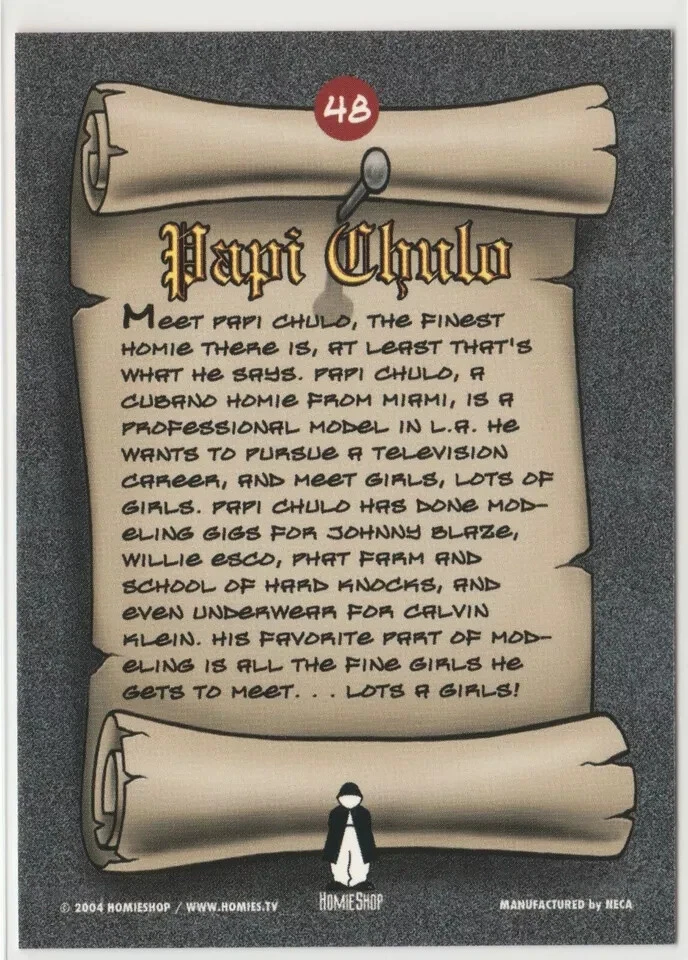 48
Papi Chulo
MEET PAPI CHULO, THE FINEST
HOMIE THERE IS, AT LEAST THAT'S
WHAT HE SAYS. PAPI CHULO, A
CUBANO HOMIE FROM MIAMI, IS A
PROFESSIONAL MODEL IN L.A. HE
WANTS TO PURSUE A TELEVISION
CAREER, AND MEET GIRLS, LOTS OF
GIRLS. PAPI CHULO HAS DONE MOD-
ELING GIGS FOR JOHNNY BLAZE,
WILLIE ESCO, PHAT FARM AND
SCHOOL OF HARD KNOCKS, AND
EVEN UNDERWEAR FOR CALVIN
KLEIN. HIS FAVORITE PART OF MOD-
ELING IS ALL THE FINE GIRLS HE
GETS TO MEET. . . LOTS A GIRLS!
© 2004 HOMIESHOP / WWW.HOMIES.TV
HOMIESHOP
MANUFACTURED by NECA